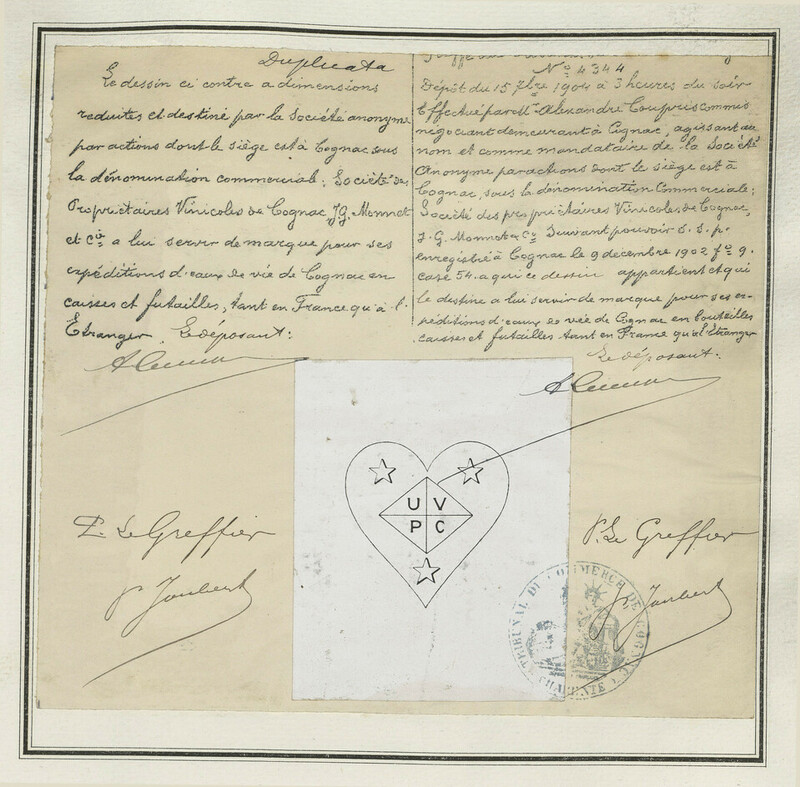 Duplicata
Le dessin ci contre a dimensions
reduites et destiné par la Société anonyme
par actions dont le siège est à Cognac sous
la dénomination commerciale: Société des
Propriétaires Vinicoles de Cognac, J.G. Monnet
et Cie a lui servir de marque pour ses
expéditions d'eaux de vie de Cognac en
caisses et futailles, tant en France qu'à l'
Etranger. Le déposant:
P. Le Greffier
p Joubert
No 4344
Dépôt du 15 7bre 1904 à 3 heures du soir
Effectué par Mr Alexandre Coupris commis
négociant demeurant à Cognac, agissant au
nom et comme mandataire de la Société
Anonyme par actions dont le siège est à
Cognac, sous la dénomination Commerciale:
Société des propriétaires Vinicoles de Cognac,
J.G. Monnet & Co Suivant pouvoir S.S.p.
enregistré à Cognac le 9 decembre 1902 fo 9.
case 54. a qui ce dessin appartient et qui
le destine a lui servir de marque pour ses ex-
péditions d'eaux de vie de Cognac en bouteilles
caisses et futailles tant en France qu'à l'étranger
Le déposant:
U V
P C
P. Le Greffier
p. Joubert
TRIBUNAL DE COMMERCE DE COGNAC
CHARENTE